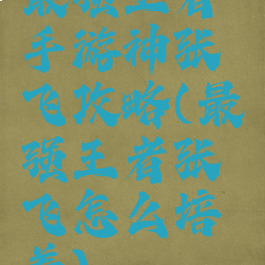 最强王者
手游神张
飞攻略(最
强王者张
飞怎么培
养)